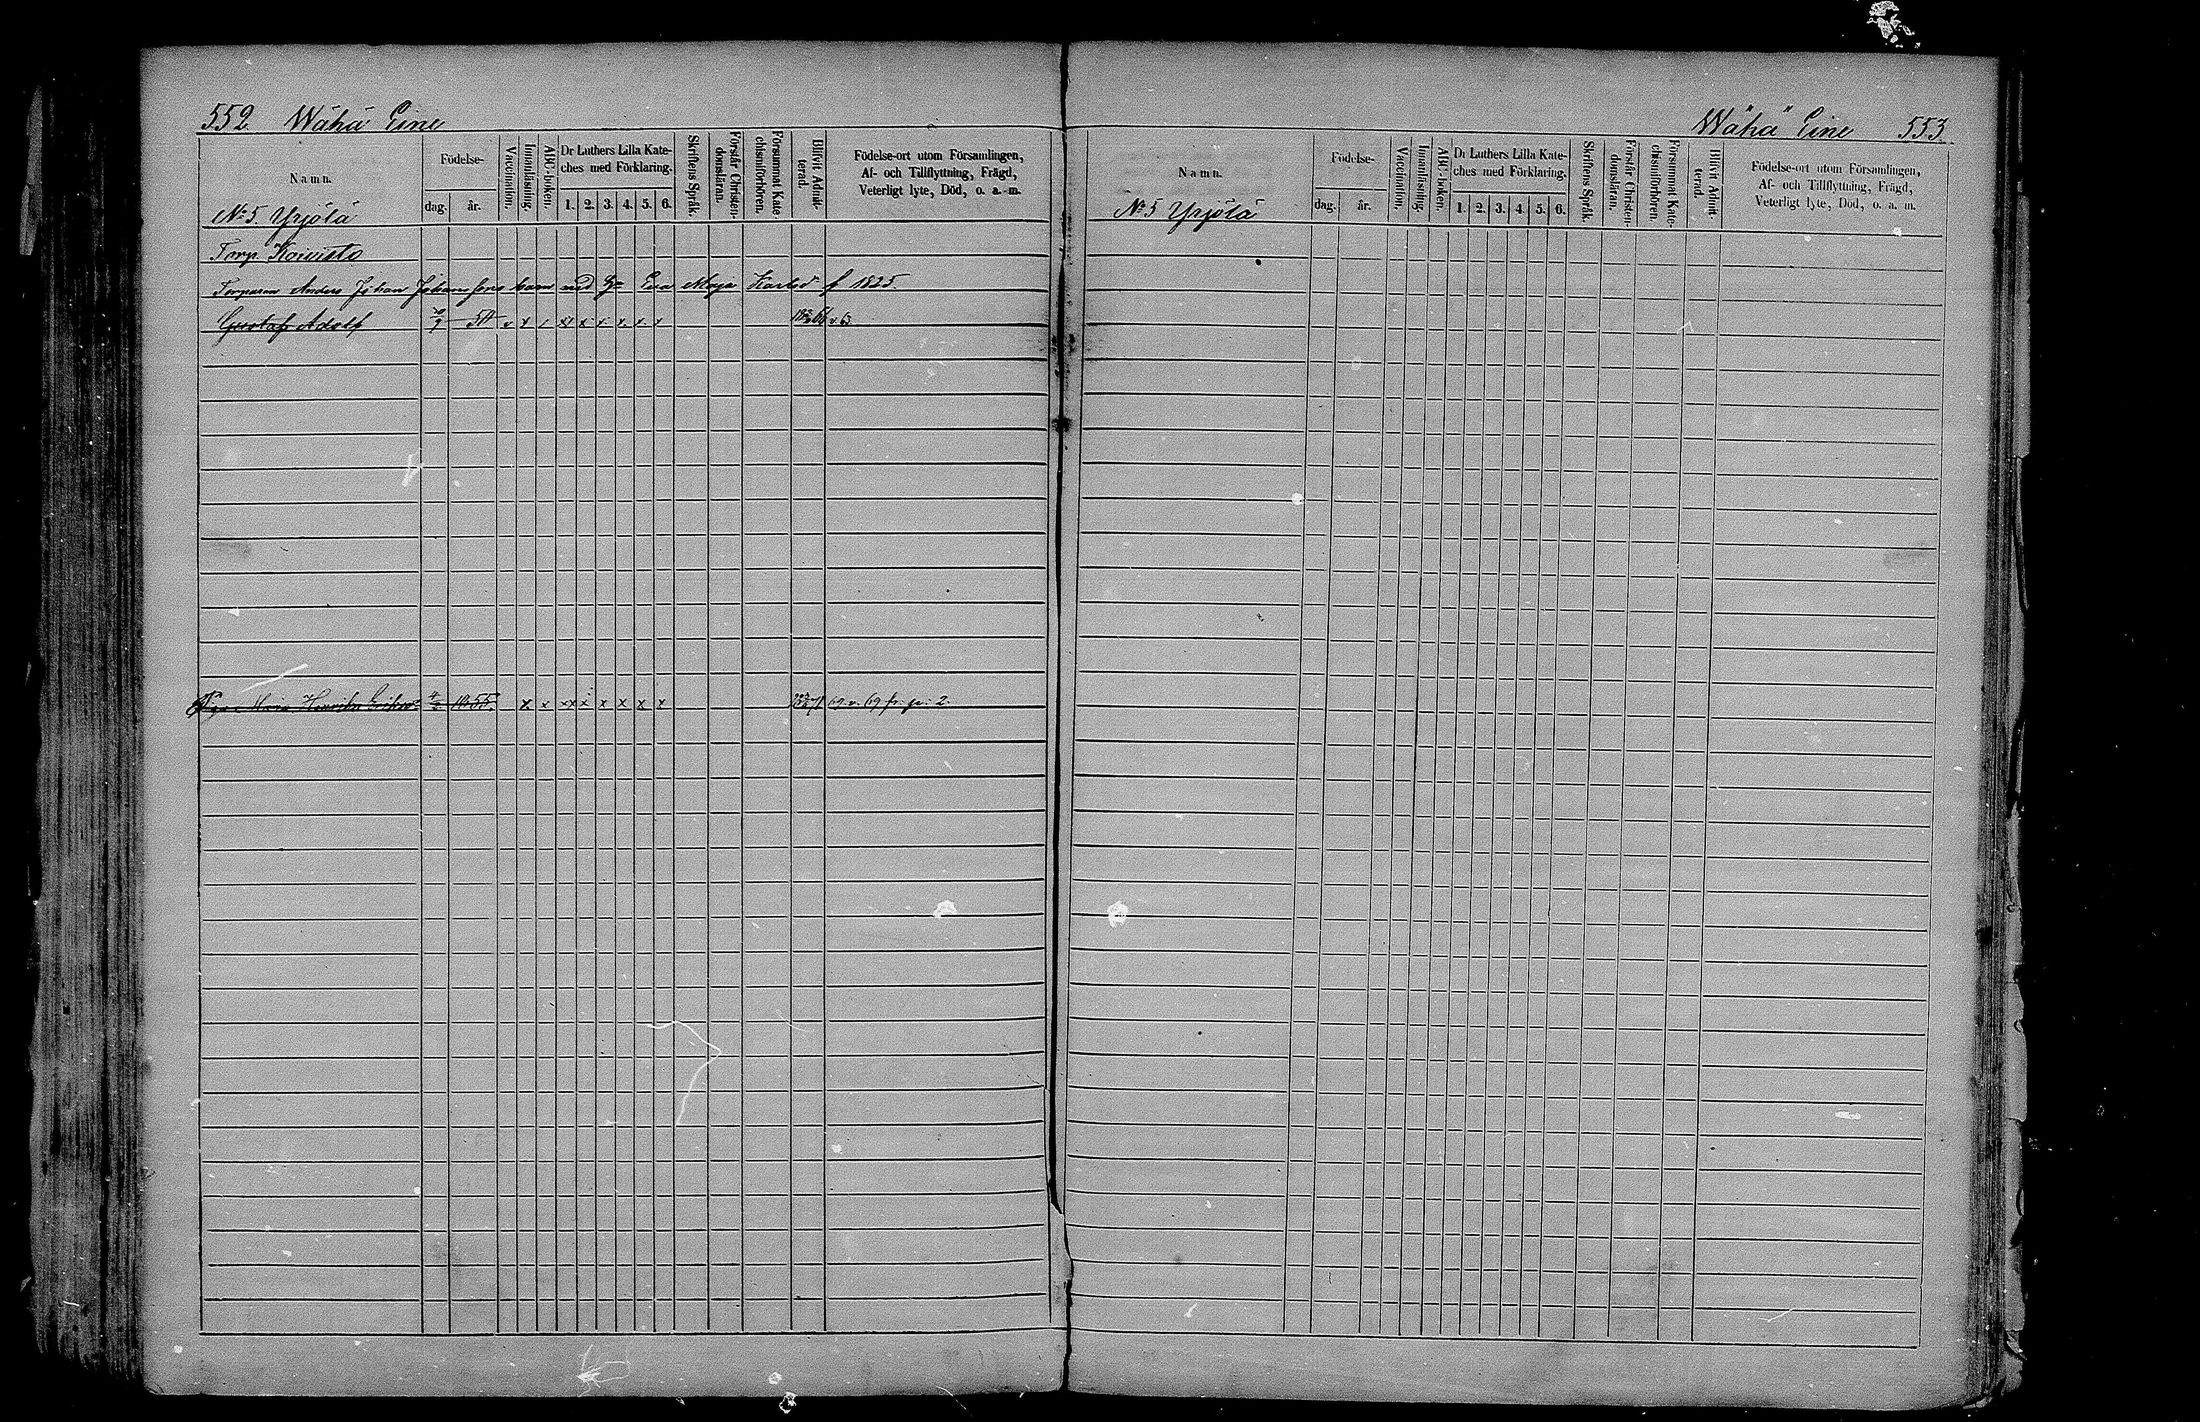 552. Wähä Eine
Namn.
Födelse-
dag. år.
Vaccination.
Innanläsning.
ABC-boken.
Dr Luthers Lilla Kate-
ches med Förklaring.
1. 2. 3. 4. 5. 6.
Skriftens Språk.
Förstår Christen-
domsläran.
Försummat Kate-
chismiförhören.
Blifvit Admit-
terad.
Födelse-ort utom Församlingen,
Af- och Tillflyttning, Frägd,
Veterligt lyte, Död, o. a. m.
No 5. Yrjölä
Torp. Koivisto
Torparen Anders Johan Johanssons barn med Eva Maja Karlsd f 1825.
Gustaf Adolf 54 x x x x x x v. 63.
Maria 1855. x x xx x x x x x 69 v. 69 fr. p: 2.
Wähä Eine 553
Namn.
Födelse-
dag. år.
Vaccination.
Innanläsning.
ABC-boken.
Dr Luthers Lilla Kate-
ches med Förklaring.
1. 2. 3. 4. 5. 6.
Skriftens Språk.
Förstår Christen-
domsläran.
Försummat Kate-
chismiförhören.
Blifvit Admit-
terad.
Födelse-ort utom Församlingen,
Af- och Tillflyttning, Frägd,
Veterligt lyte, Död, o. a. m.
No 5 Yrjölä